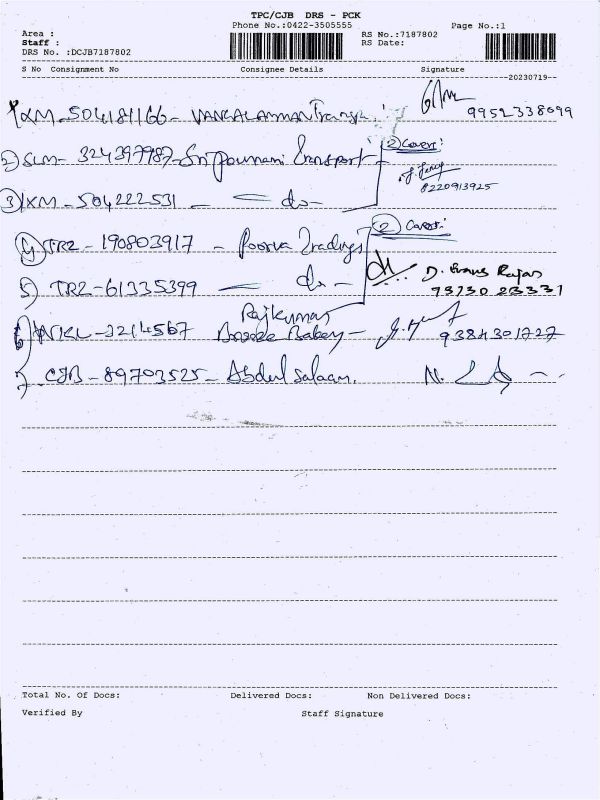 TPC/CJB DRS - PCK
Phone No.:0422-3505555 Page No.:1
Area : RS No.:7187802
Staff : RS Date:
DRS No. :DCJB7187802
S No Consignment No Consignee Details Signature
--20230719--
1) IXM-504181166- 9952338099
2) SLM- 324397987-Sri Pournami Transport (2) Cover:
8220913925
3) IXM-504222531 - do-
4) TRZ-190803917 - Poorva Tradings (2) Cover:
5) TRZ-61335399 do - D. Rajan
Rajkumar 93730 23331
6) 3214567 Bakery- 9384301727
7. CJB-89703525-Abdul Salaam. N.
Total No. Of Docs: Delivered Docs: Non Delivered Docs:
Verified By Staff Signature